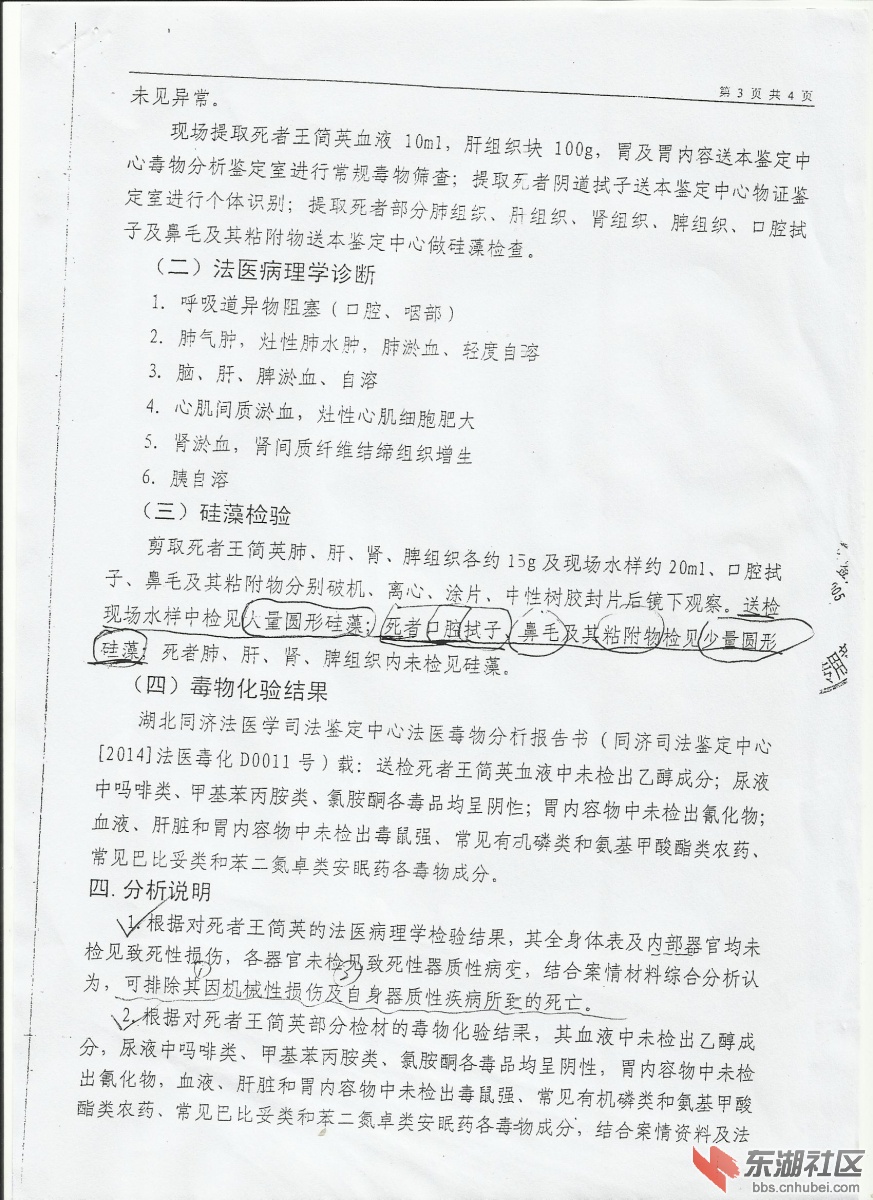 第 3 页 共 4 页
未见异常。
现场提取死者王简英血液 10ml，肝组织块 100g，胃及胃内容送本鉴定中
心毒物分析鉴定室进行常规毒物筛查；提取死者阴道拭子送本鉴定中心物证鉴
定室进行个体识别；提取死者部分肺组织、肝组织、肾组织、脾组织、口腔拭
子及鼻毛及其粘附物送本鉴定中心做硅藻检查。
（二）法医病理学诊断
1. 呼吸道异物阻塞（口腔、咽部）
2. 肺气肿，灶性肺水肿，肺淤血、轻度自溶
3. 脑、肝、脾淤血、自溶
4. 心肌间质淤血，灶性心肌细胞肥大
5. 肾淤血，肾间质纤维结缔组织增生
6. 胰自溶
（三）硅藻检验
剪取死者王简英肺、肝、肾、脾组织各约 15g 及现场水样约 20ml、口腔拭
子、鼻毛及其粘附物分别破机、离心、涂片、中性树胶封片后镜下观察。送检
现场水样中检见大量圆形硅藻；死者口腔拭子、鼻毛及其粘附物检见少量圆形
硅藻；死者肺、肝、肾、脾组织内未检见硅藻。
（四）毒物化验结果
湖北同济法医学司法鉴定中心法医毒物分析报告书（同济司法鉴定中心
[2014]法医毒化 D0011 号）载：送检死者王简英血液中未检出乙醇成分；尿液
中吗啡类、甲基苯丙胺类、氯胺酮各毒品均呈阴性；胃内容物中未检出氰化物；
血液、肝脏和胃内容物中未检出毒鼠强、常见有机磷类和氨基甲酸酯类农药、
常见巴比妥类和苯二氮卓类安眠药各毒物成分。
四. 分析说明
1. 根据对死者王简英的法医病理学检验结果，其全身体表及内部器官均未
检见致死性损伤，各器官未检见致死性器质性病变，结合案情材料综合分析认
为，可排除其因机械性损伤及自身器质性疾病所致的死亡。
2. 根据对死者王简英部分检材的毒物化验结果，其血液中未检出乙醇成
分，尿液中吗啡类、甲基苯丙胺类、氯胺酮各毒品均呈阴性，胃内容物中未检
出氰化物，血液、肝脏和胃内容物中未检出毒鼠强、常见有机磷类和氨基甲酸
酯类农药、常见巴比妥类和苯二氮卓类安眠药各毒物成分，结合案情资料及法
东湖社区
bbs.cnhubei.com